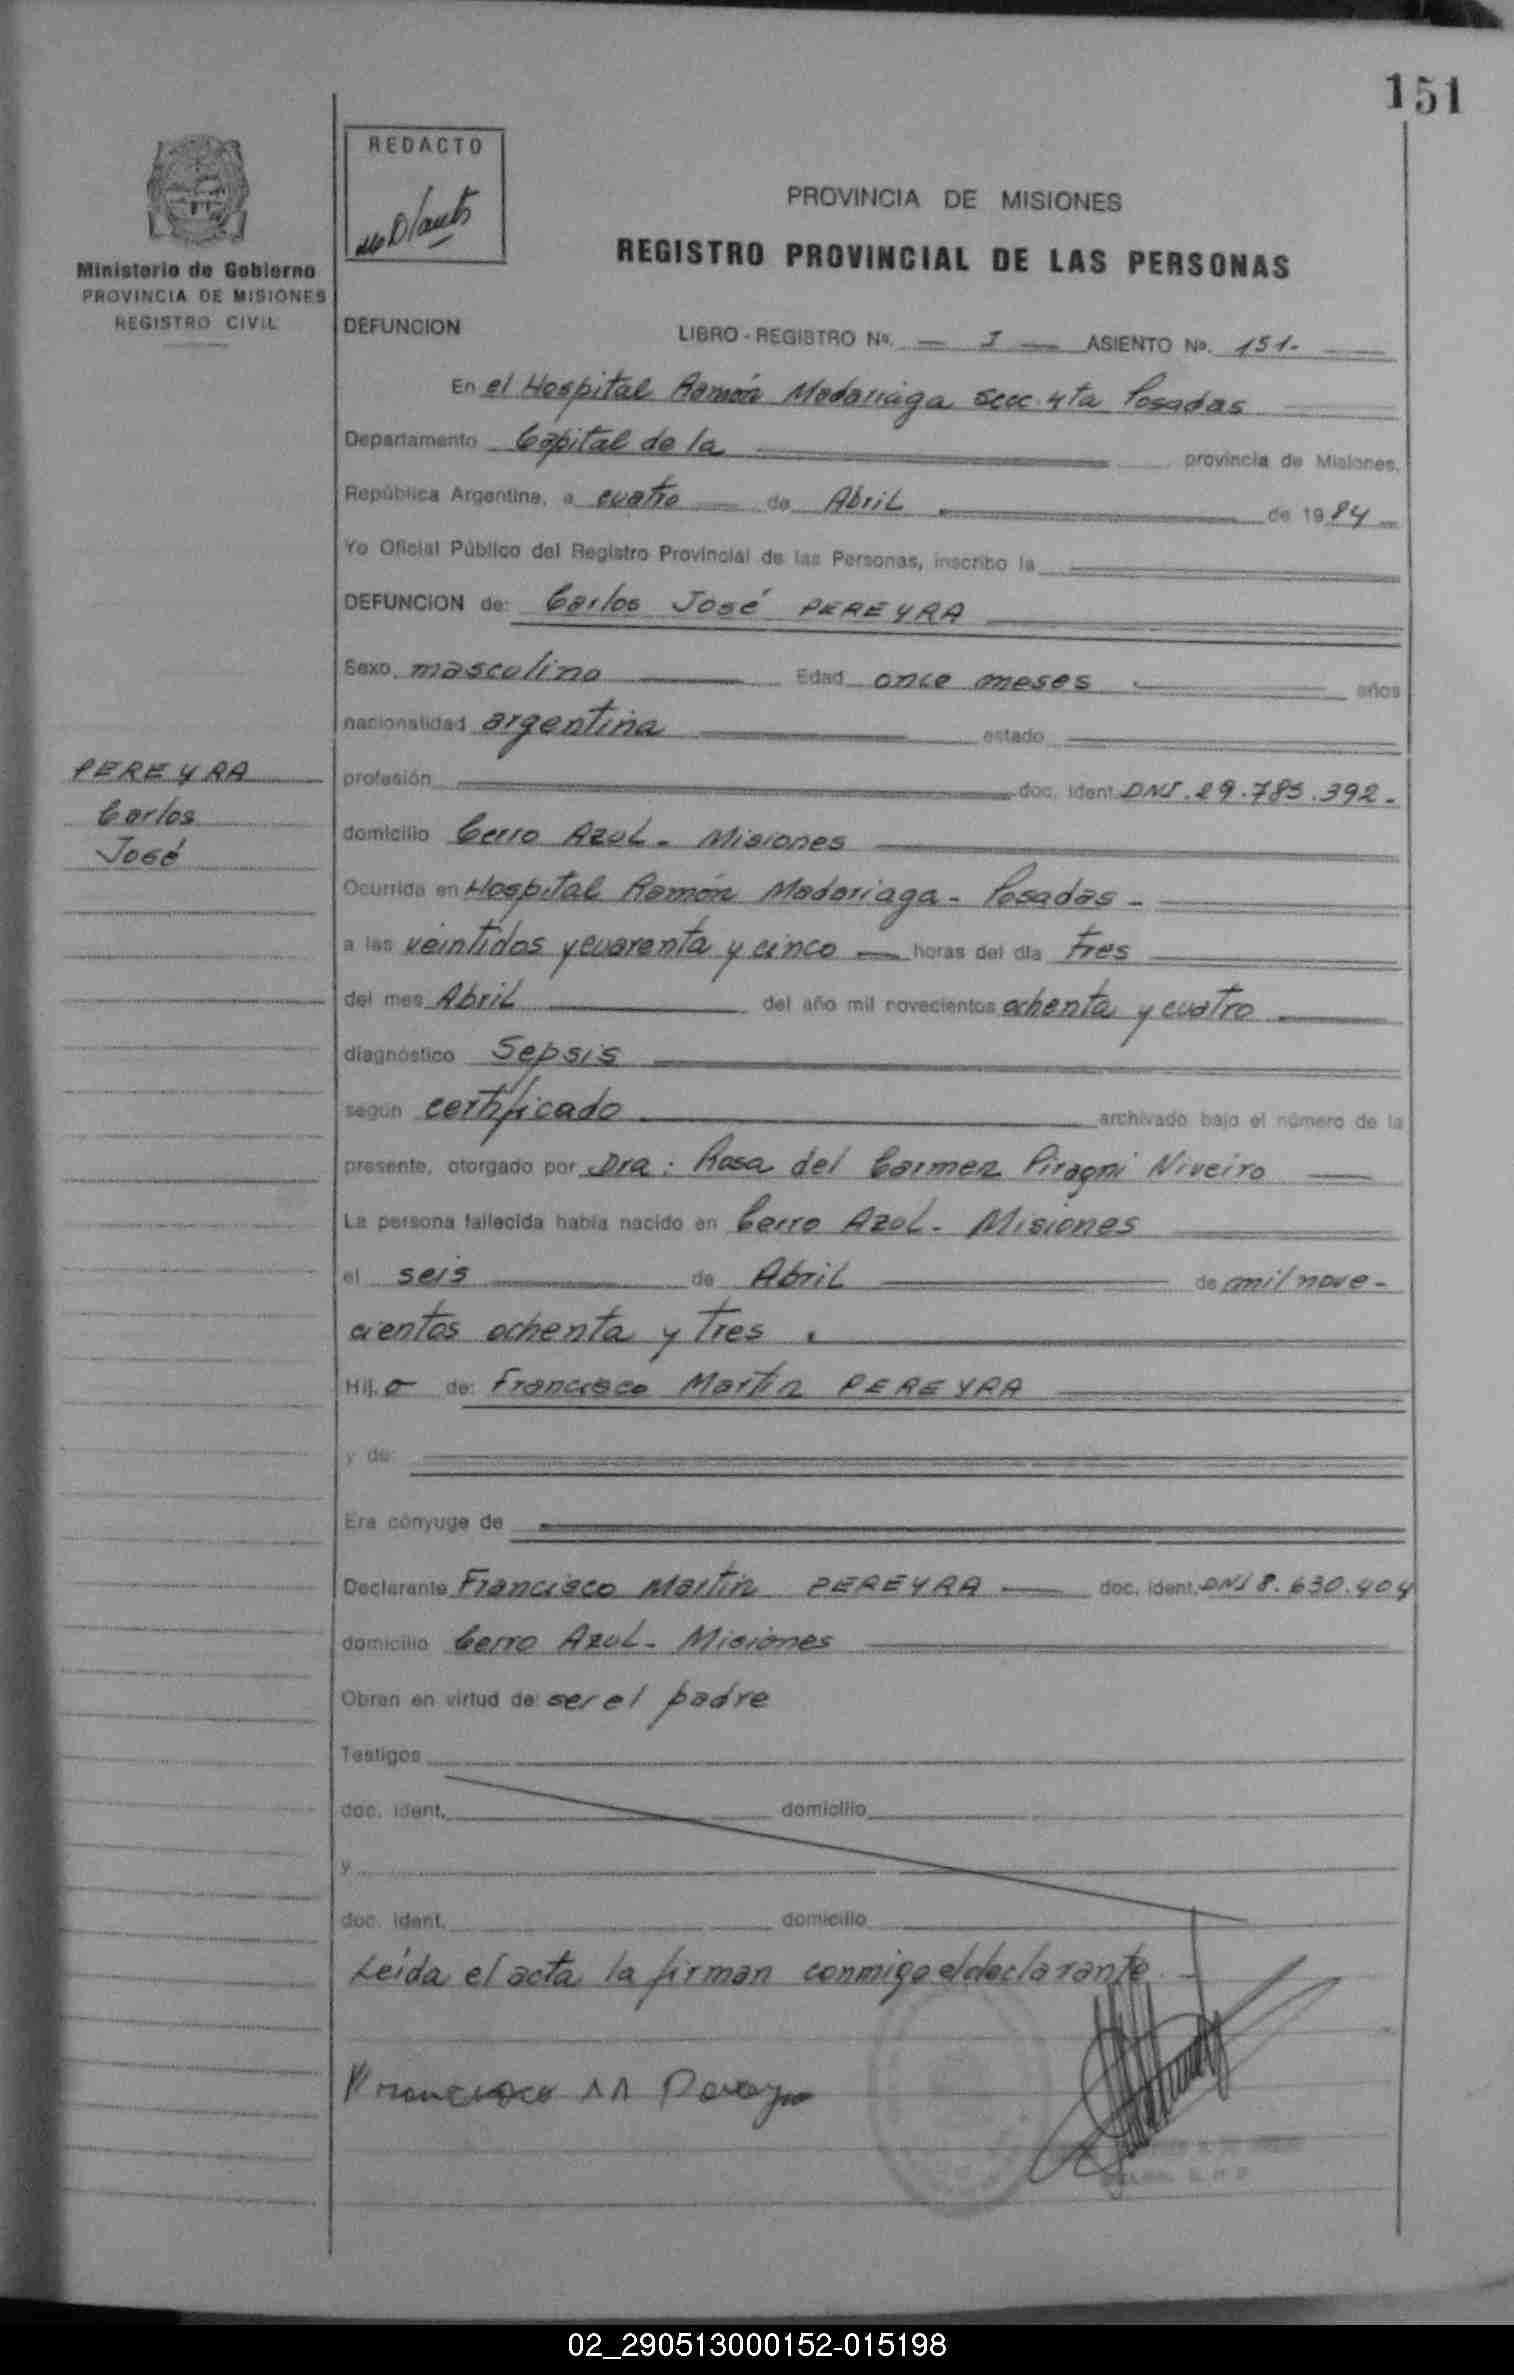 151
REDACTO
Ministerio de Gobierno
PROVINCIA DE MISIONES
REGISTRO CIVIL
PROVINCIA DE MISIONES
REGISTRO PROVINCIAL DE LAS PERSONAS
DEFUNCION LIBRO - REGISTRO Nº. I ASIENTO Nº. 151.
En el Hospital Ramón Madariaga secc. 4ta Posadas
Departamento Capital de la provincia de Misiones,
República Argentina, a cuatro de Abril de 1984
Yo Oficial Público del Registro Provincial de las Personas, inscribo la
DEFUNCION de: Carlos José PEREYRA
Sexo. masculino Edad once meses años
nacionalidad argentina estado
PEREYRA
Carlos
José
profesión doc. ident. DNI. 29.785.392.
domicilio Cerro Azul. Misiones
Ocurrida en Hospital Ramón Madariaga - Posadas -
a las veintidos y cuarenta y cinco horas del día tres
del mes Abril del año mil novecientos ochenta y cuatro
diagnóstico Sepsis
según certificado archivado bajo el número de la
presente, otorgado por Dra: Rosa del Carmen Piragni Niveiro
La persona fallecida había nacido en Cerro Azul. Misiones
el seis de Abril de mil nove-
cientos ochenta y tres .
Hij. o de: Francisco Martin PEREYRA
y de:
Era cónyuge de
Declarante Francisco Martin PEREYRA doc. ident. DNI 8.630.404
domicilio Cerro Azul. Misiones
Obran en virtud de: ser el padre
Testigos
doc. ident. domicilio
y
doc. ident. domicilio
Leída el acta la firman conmigo el declarante.
Francisco M Pereyra
02_290513000152-015198